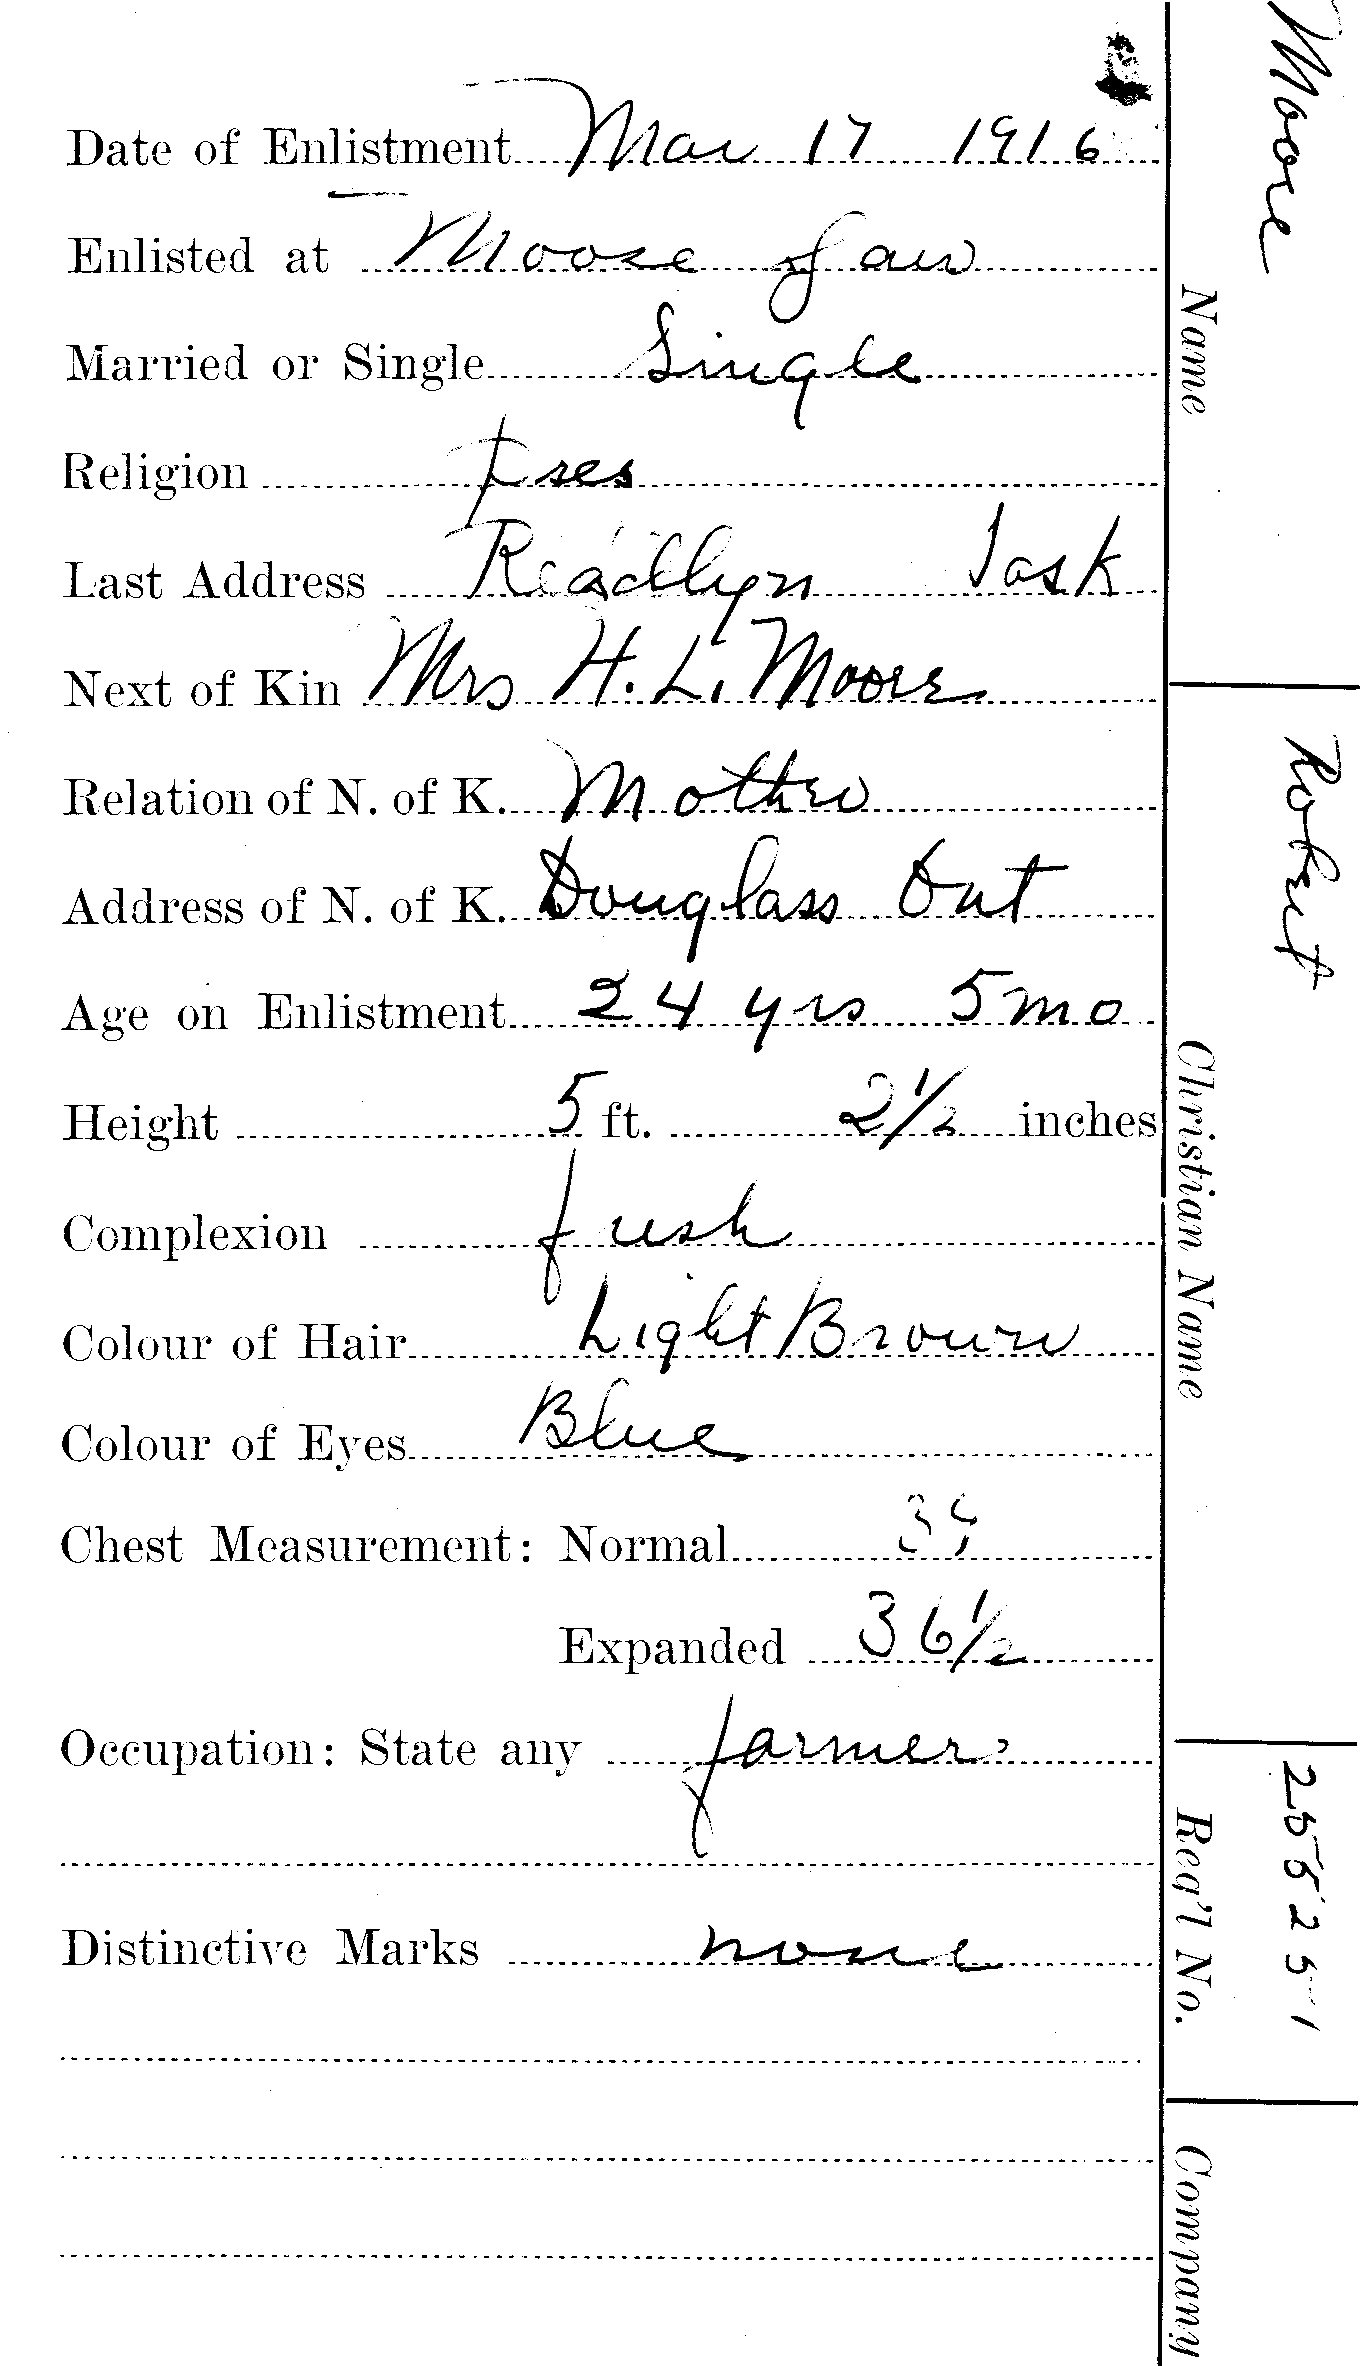 Date of Enlistment Mar 17 1916
Enlisted at Moose Jaw
Married or Single Single
Religion Pres
Last Address Readlyn Sask
Next of Kin Mrs H. L. Moore
Relation of N. of K. Mother
Address of N. of K. Douglass Ont
Age on Enlistment 24 yrs 5 mo
Height 5 ft. 2 1/2 inches
Complexion fresh
Colour of Hair Light Brown
Colour of Eyes Blue
Chest Measurement: Normal
Expanded 36 1/2
Occupation: State any farmer
Distinctive Marks none
Moore
Name
Robert
Christian Name
255251
Reg'l No.
Company